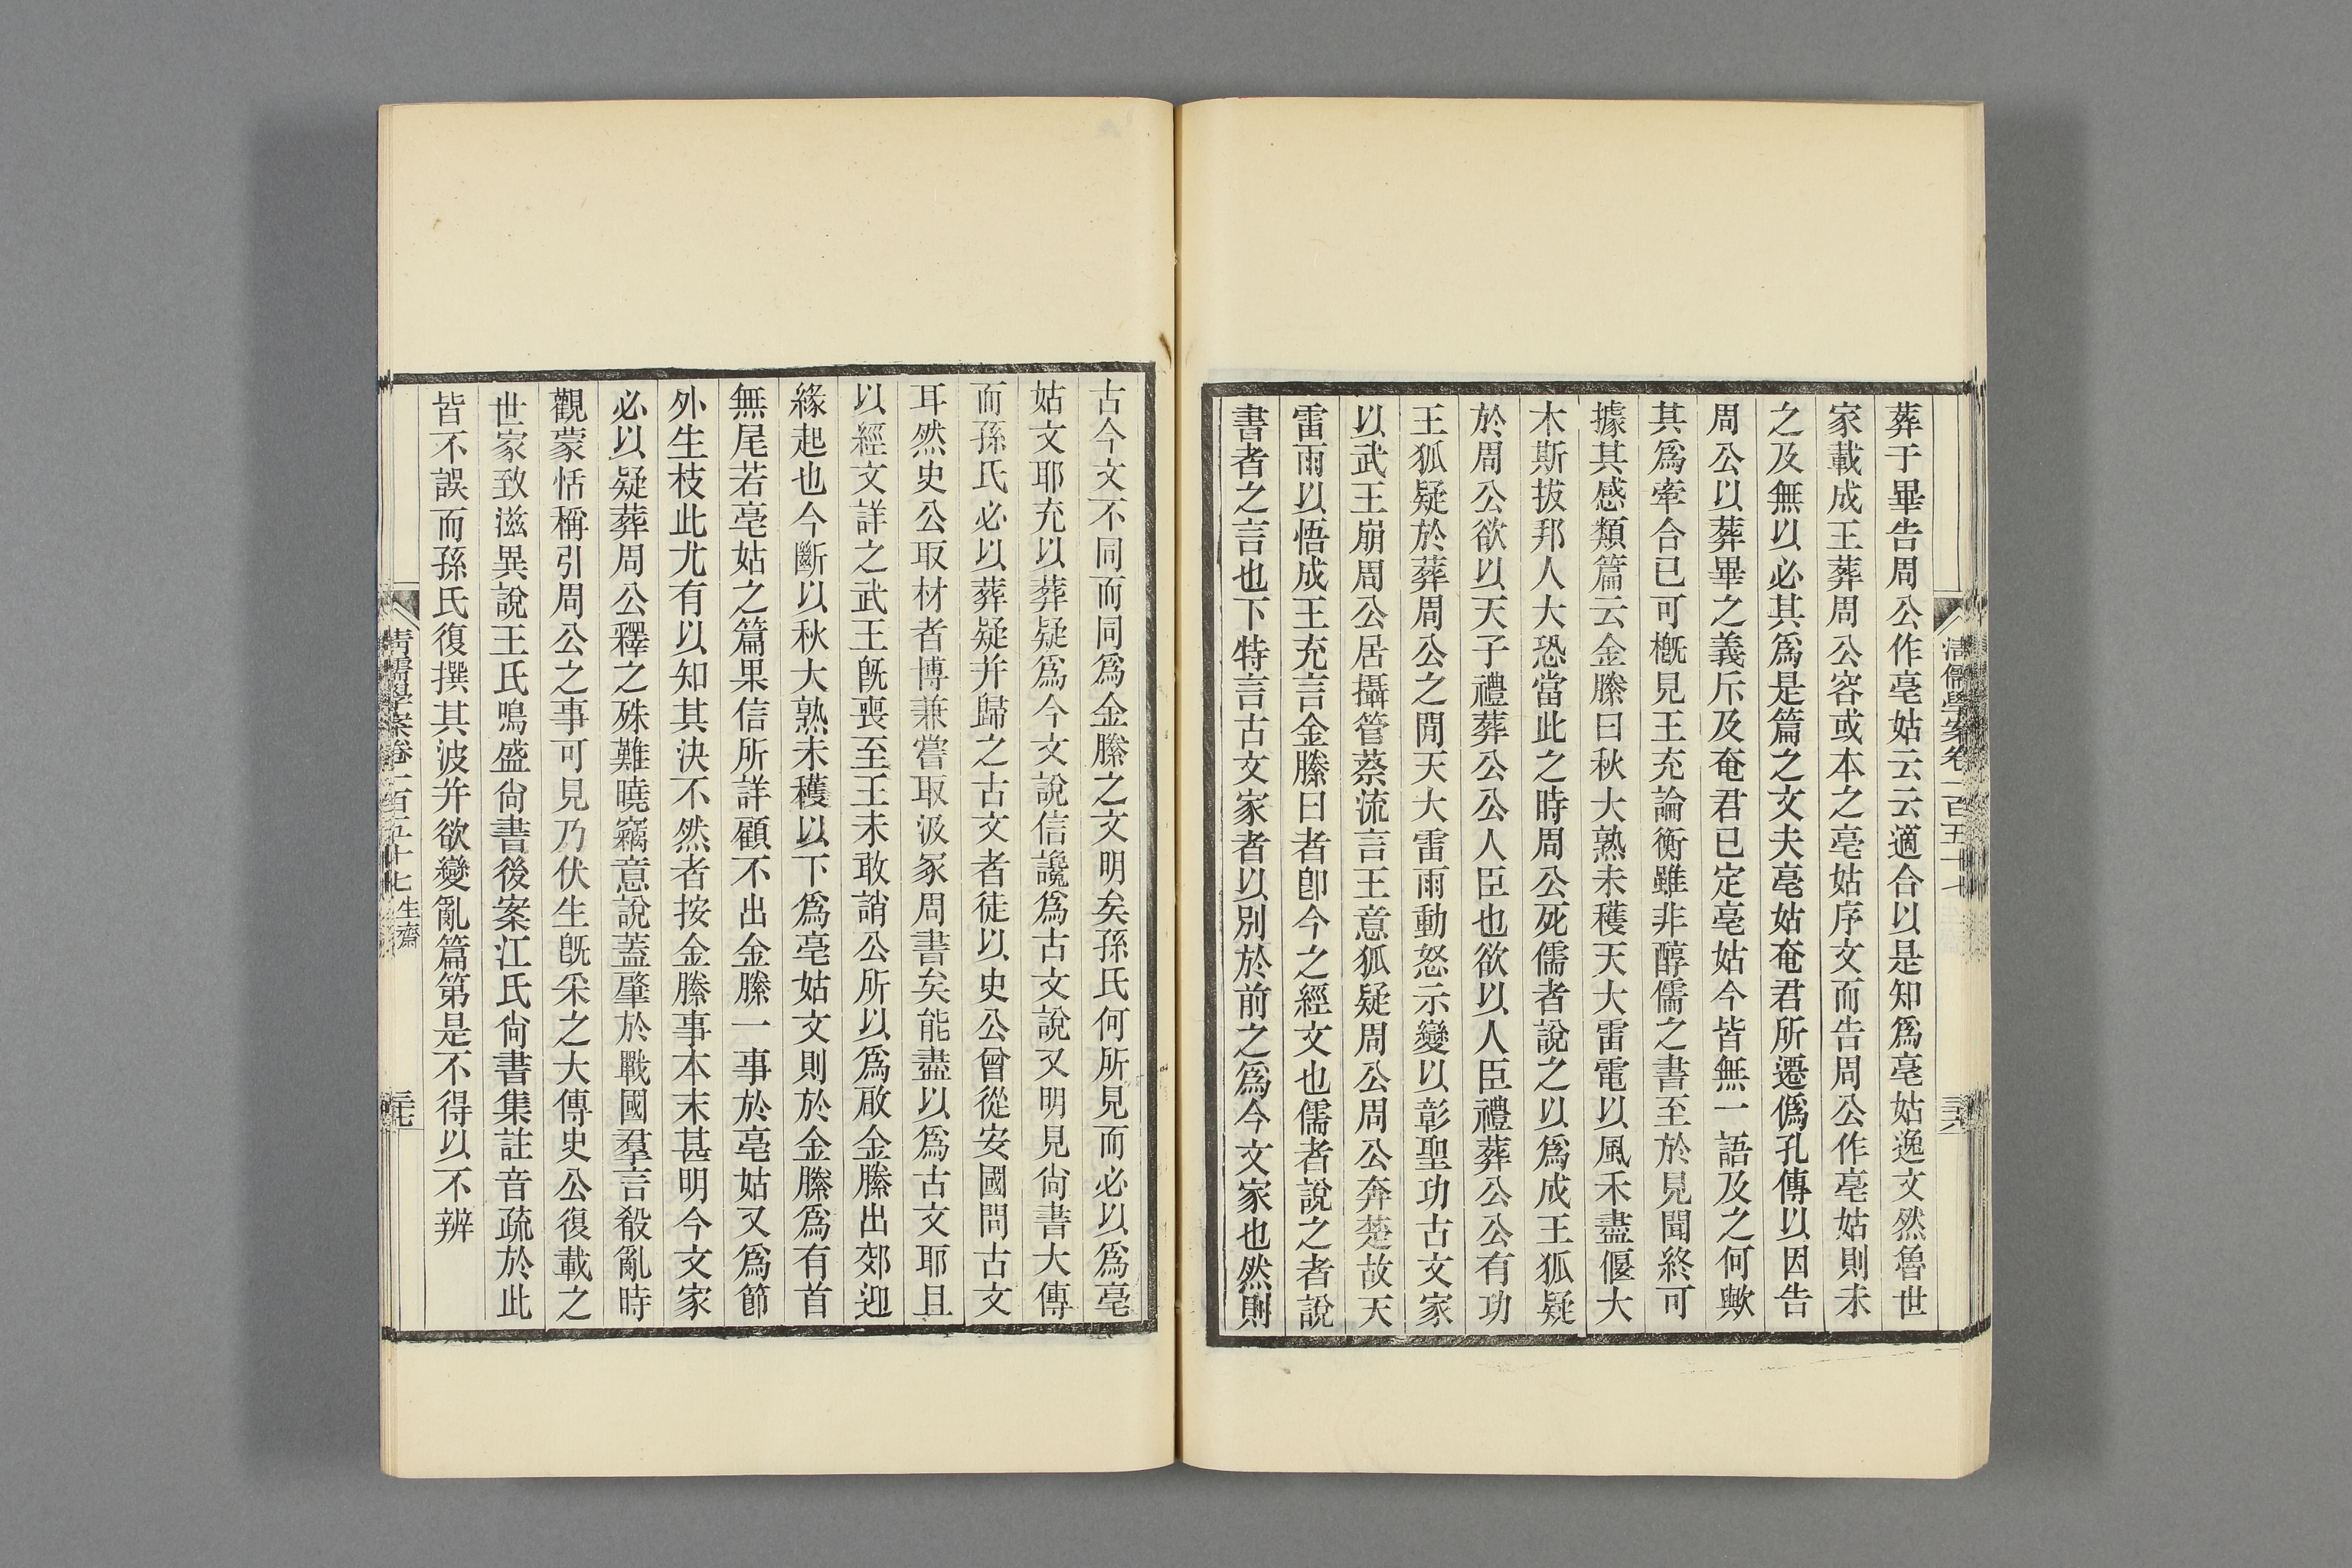 葬于畢告周公作亳姑云云適合以是知爲亳姑逸文然魯世
家載成王葬周公容或本之亳姑序文而告周公作亳姑則未
之及無以必其爲是篇之文夫亳姑奄君所遷僞孔傳以因告
周公以葬畢之義斥及奄君已定亳姑今皆無一語及之何歟
其爲牽合已可槪見王充論衡雖非醇儒之書至於見聞終可
據其感類篇云金縢曰秋大熟未穫天大雷電以風禾盡偃大
木斯拔邦人大恐當此之時周公死儒者說之以爲成王狐疑
於周公欲以天子禮葬公公人臣也欲以人臣禮葬公公有功
王狐疑於葬周公之閒天大雷雨動怒示變以彰聖功古文家
以武王崩周公居攝管蔡流言王意狐疑周公周公奔楚故天
雷雨以悟成王充言金縢曰者卽今之經文也儒者說之者說
書者之言也下特言古文家者以別於前之爲今文家也然則
清儒學案卷一百五十七
三六
古今文不同而同爲金縢之文明矣孫氏何所見而必以爲亳
姑文耶充以葬疑爲今文說信讒爲古文說又明見尙書大傳
而孫氏必以葬疑并歸之古文者徒以史公曾從安國問古文
耳然史公取材者博兼嘗取汲冢周書矣能盡以爲古文耶且
以經文詳之武王旣喪至王未敢誚公所以爲啟金縢出郊迎
緣起也今斷以秋大熟未穫以下爲亳姑文則於金縢爲有首
無尾若亳姑之篇果信所詳顧不出金縢一事於亳姑又爲節
外生枝此尤有以知其決不然者按金縢事本末甚明今文家
必以疑葬周公釋之殊難曉竊意說蓋肇於戰國羣言殽亂時
觀蒙恬稱引周公之事可見乃伏生旣采之大傳史公復載之
世家致滋異說王氏鳴盛尙書後案江氏尙書集註音疏於此
皆不誤而孫氏復撰其波并欲變亂篇第是不得以不辨
清儒學案卷一百五十七 生齋
三七